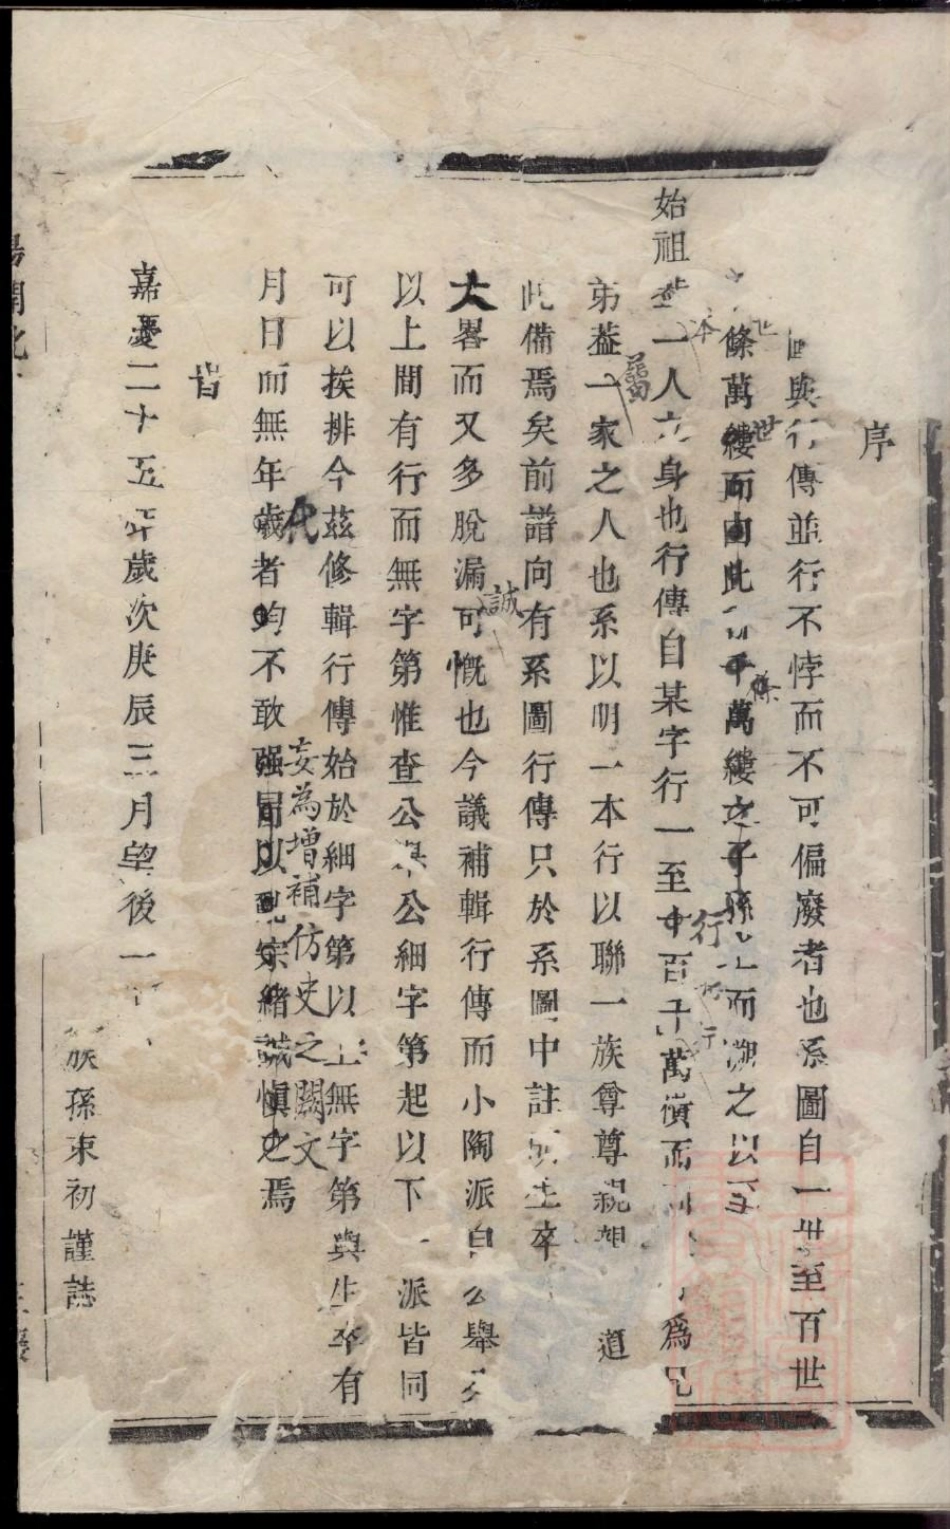 序
與行傳並行不悖而不可偏廢者也系圖自一世至百世
條萬縷而由此千萬縷之子孫而溯之以至
始祖一人之身也行傳自某字行一至十百千萬億而為兄
弟蓋一家之人也系以明一本行以聯一族尊尊親親道
此備焉矣前譜向有系圖行傳只於系圖中註生卒
大畧而又多脫漏可慨也今議補輯行傳而小陶派自公舉公
以上間有行而無字第惟查公與公細字第起以下一派皆同
可以挨排今茲修輯行傳始於細字第以上無字第與生卒有
月日而無年歲者均不敢强同以亂宗緒誠慎之焉
旹
嘉慶二十五年歲次庚辰三月望後一
族孫東初謹誌
世
世
本
條
行
舊
誠
代
妄為增補仿史之闕文